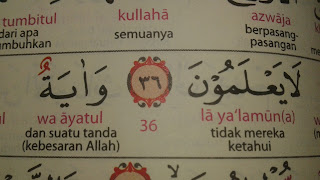 tumbitul kullahā azwāja
dari apa semuanya berpasang-
umbuhkan pasangan
لَا يَعْلَمُوْنَ ٣٦ وَاٰيَةٌ
wa āyatul 36 lā ya'lamūn(a)
dan suatu tanda tidak mereka
(kebesaran Allah) ketahui